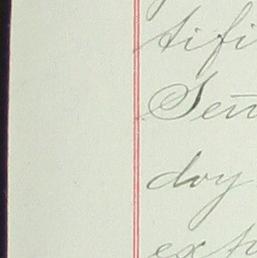 tifi
Sen
doy
exp